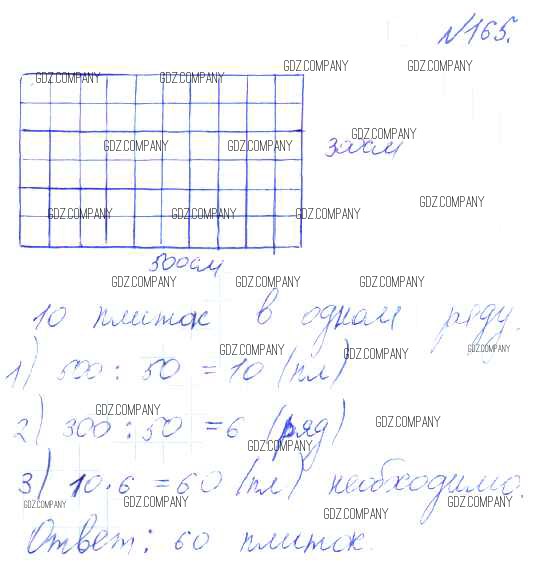 №165.
GDZ.COMPANY GDZ.COMPANY
GDZ.COMPANY GDZ.COMPANY
GDZ.COMPANY
300см
GDZ.COMPANY GDZ.COMPANY
GDZ.COMPANY
GDZ.COMPANY GDZ.COMPANY GDZ.COMPANY
500см
GDZ.COMPANY GDZ.COMPANY GDZ.COMPANY
10 плиток в одном ряду.
GDZ.COMPANY GDZ.COMPANY GDZ.COMPANY
1) 500 : 50 = 10 (пл)
GDZ.COMPANY GDZ.COMPANY
2) 300 : 50 = 6 (ряд)
GDZ.COMPANY
3) 10 · 6 = 60 (пл) необходимо.
GDZ.COMPANY GDZ.COMPANY GDZ.COMPANY
GDZ.COMPANY
Ответ: 60 плиток.